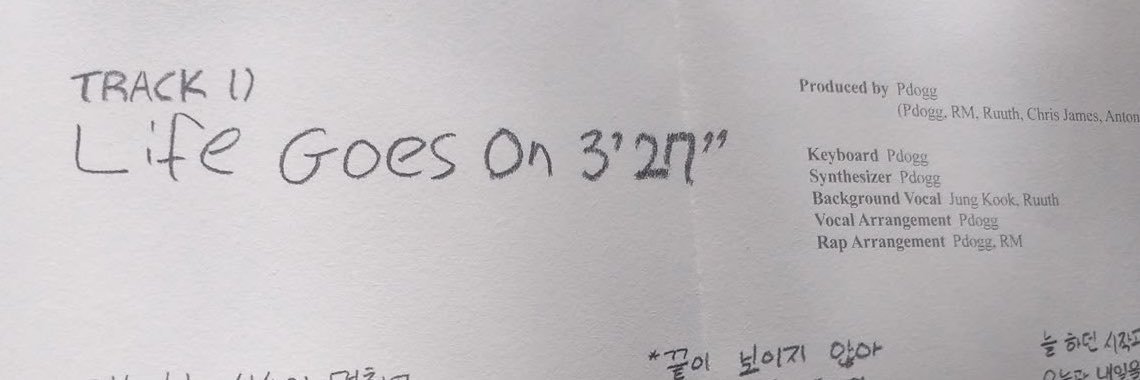 TRACK 1)
Life Goes On 3'27"
Produced by Pdogg
(Pdogg, RM, Ruuth, Chris James, Anton
Keyboard Pdogg
Synthesizer Pdogg
Background Vocal Jung Kook, Ruuth
Vocal Arrangement Pdogg
Rap Arrangement Pdogg, RM
*끝이 보이지 않아
늘 하던 시작과